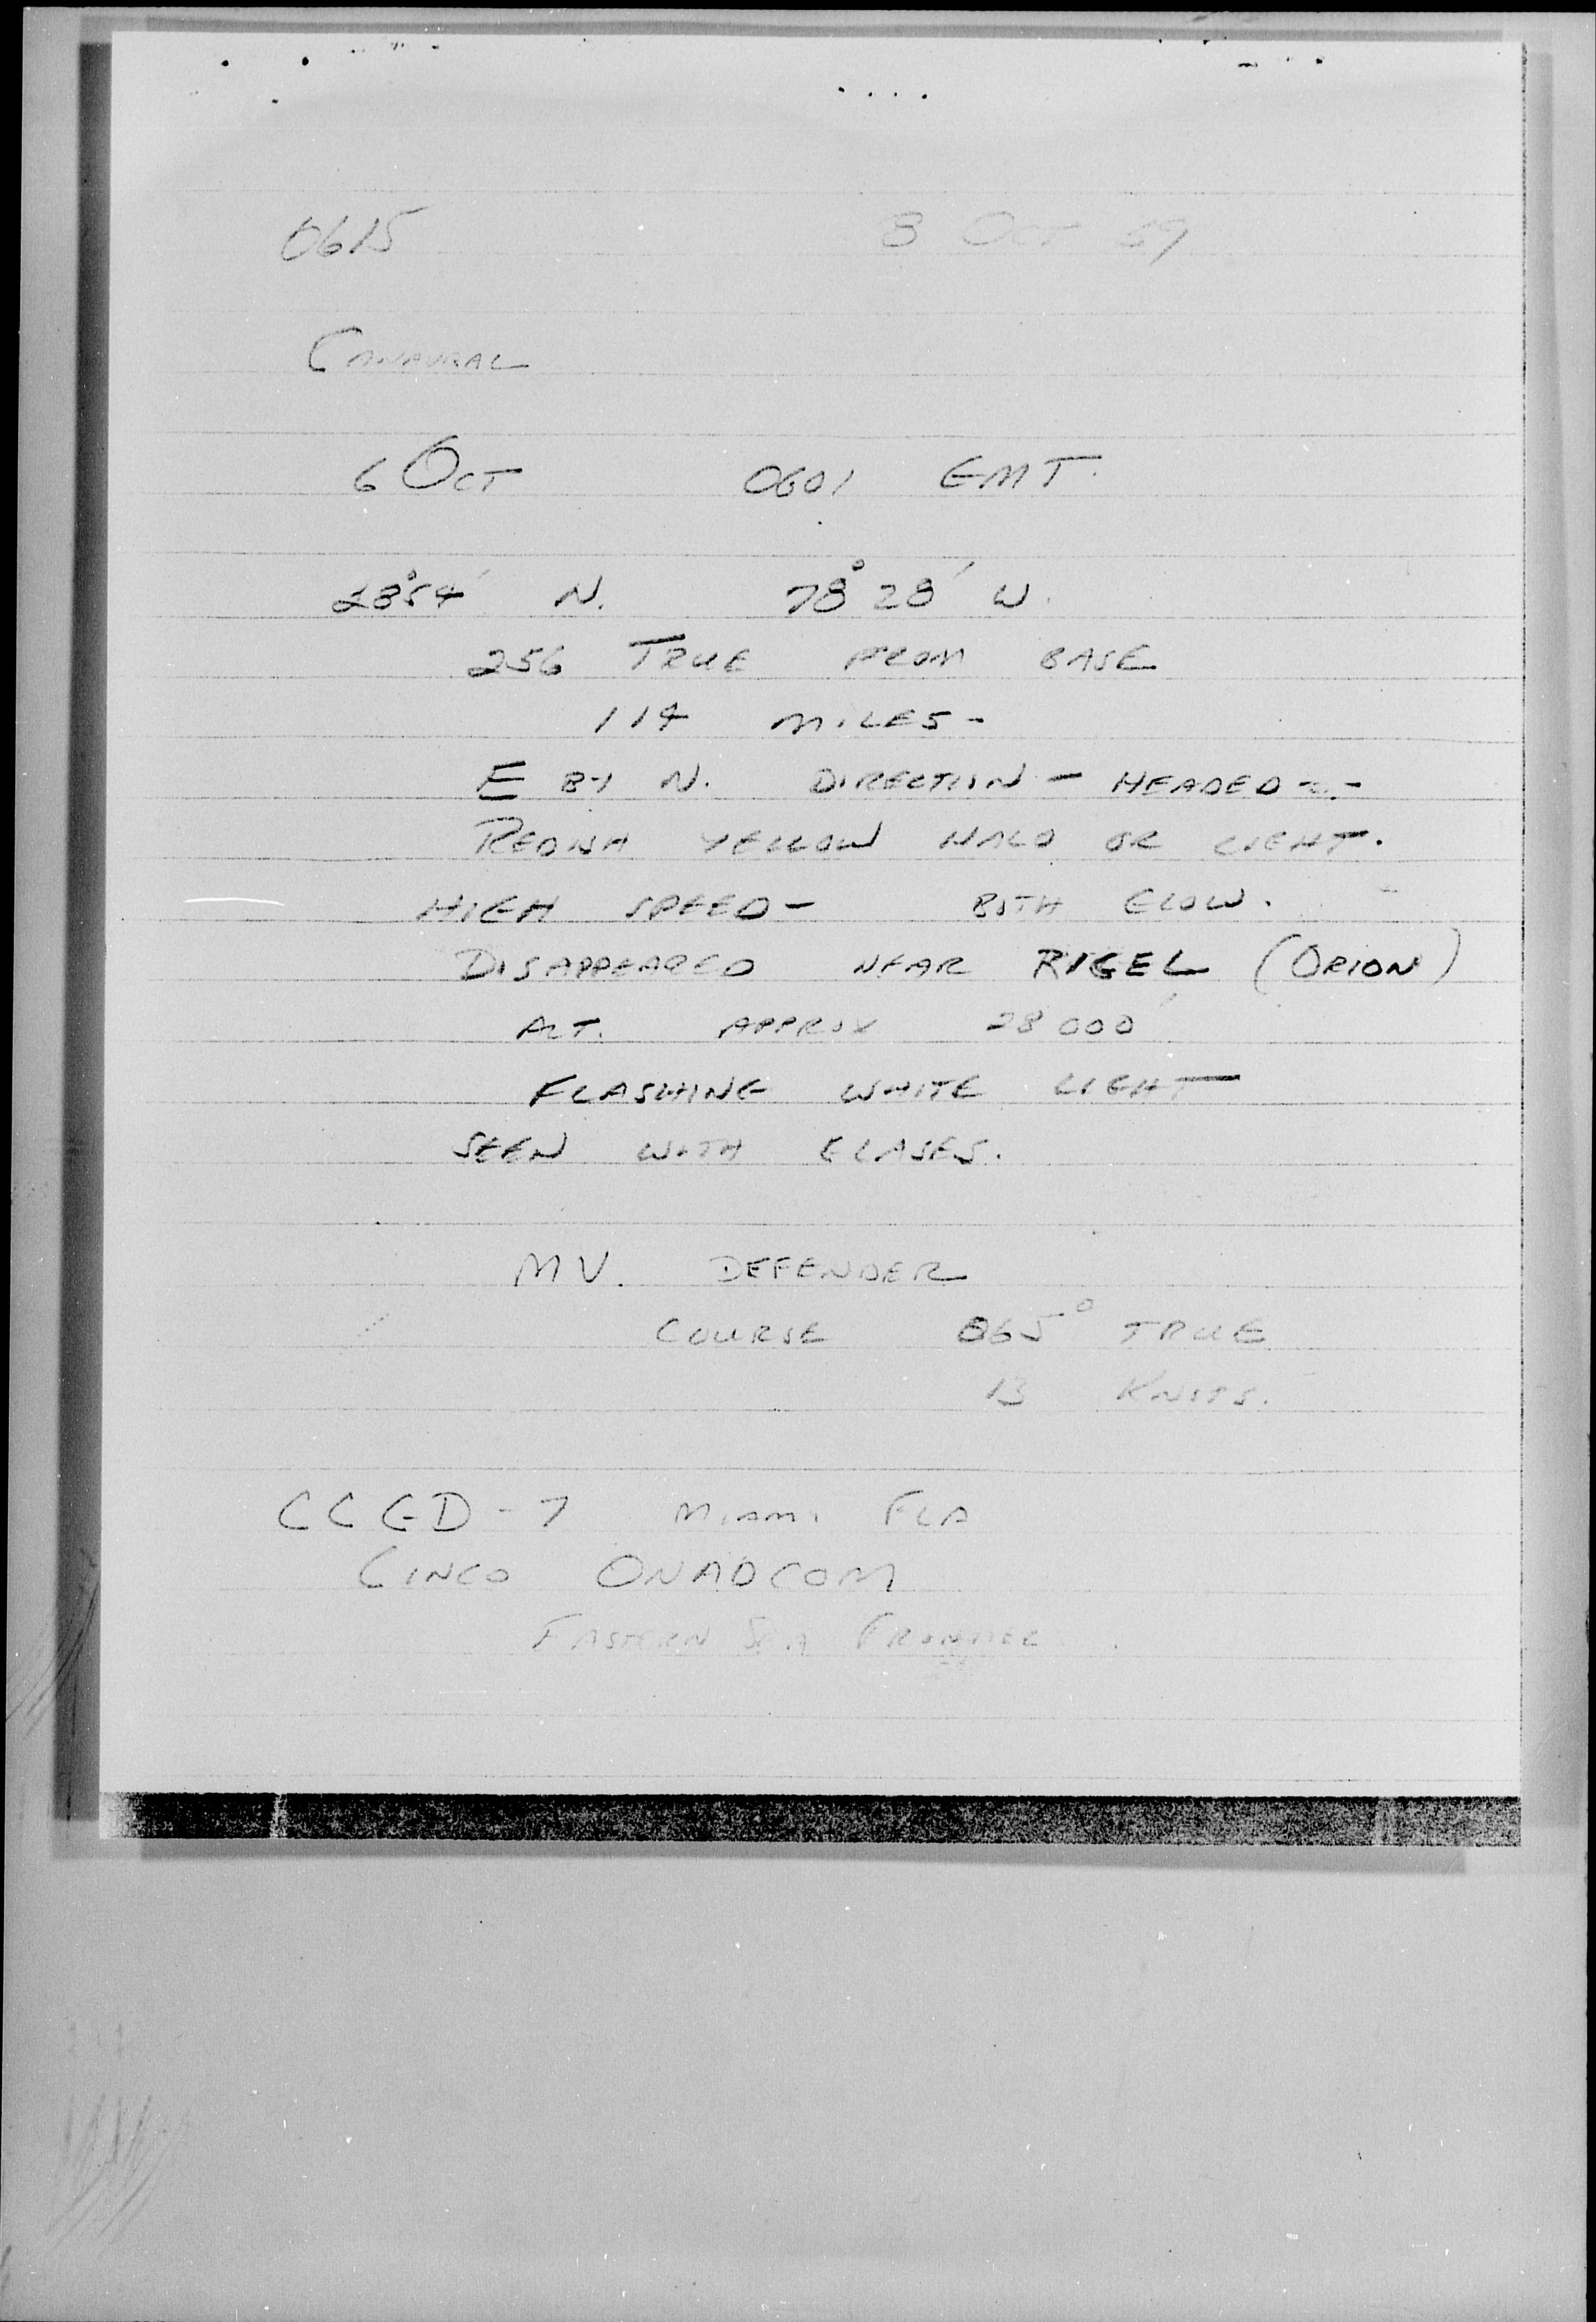 0615 8 Oct 69
CANAVRAL
6 OCT 0601 GMT.
28°54' N. 78°28' W.
256 TRUE FROM BASE
114 MILES -
E BY N. DIRECTION - HEADED - -
REDISH YELLOW HALO OR LIGHT.
HIGH SPEED - BOTH GLOW.
DISAPPEARED NEAR RIGEL (ORION)
ALT. APPROX 28000'
FLASHING WHITE LIGHT
SEEN WITH GLASES.
MV. DEFENDER
COURSE 065° TRUE
13 KNOTS.
CCGD-7 MIAMI FLA
CINCO ONADCOM
EASTERN SEA FRONTIER